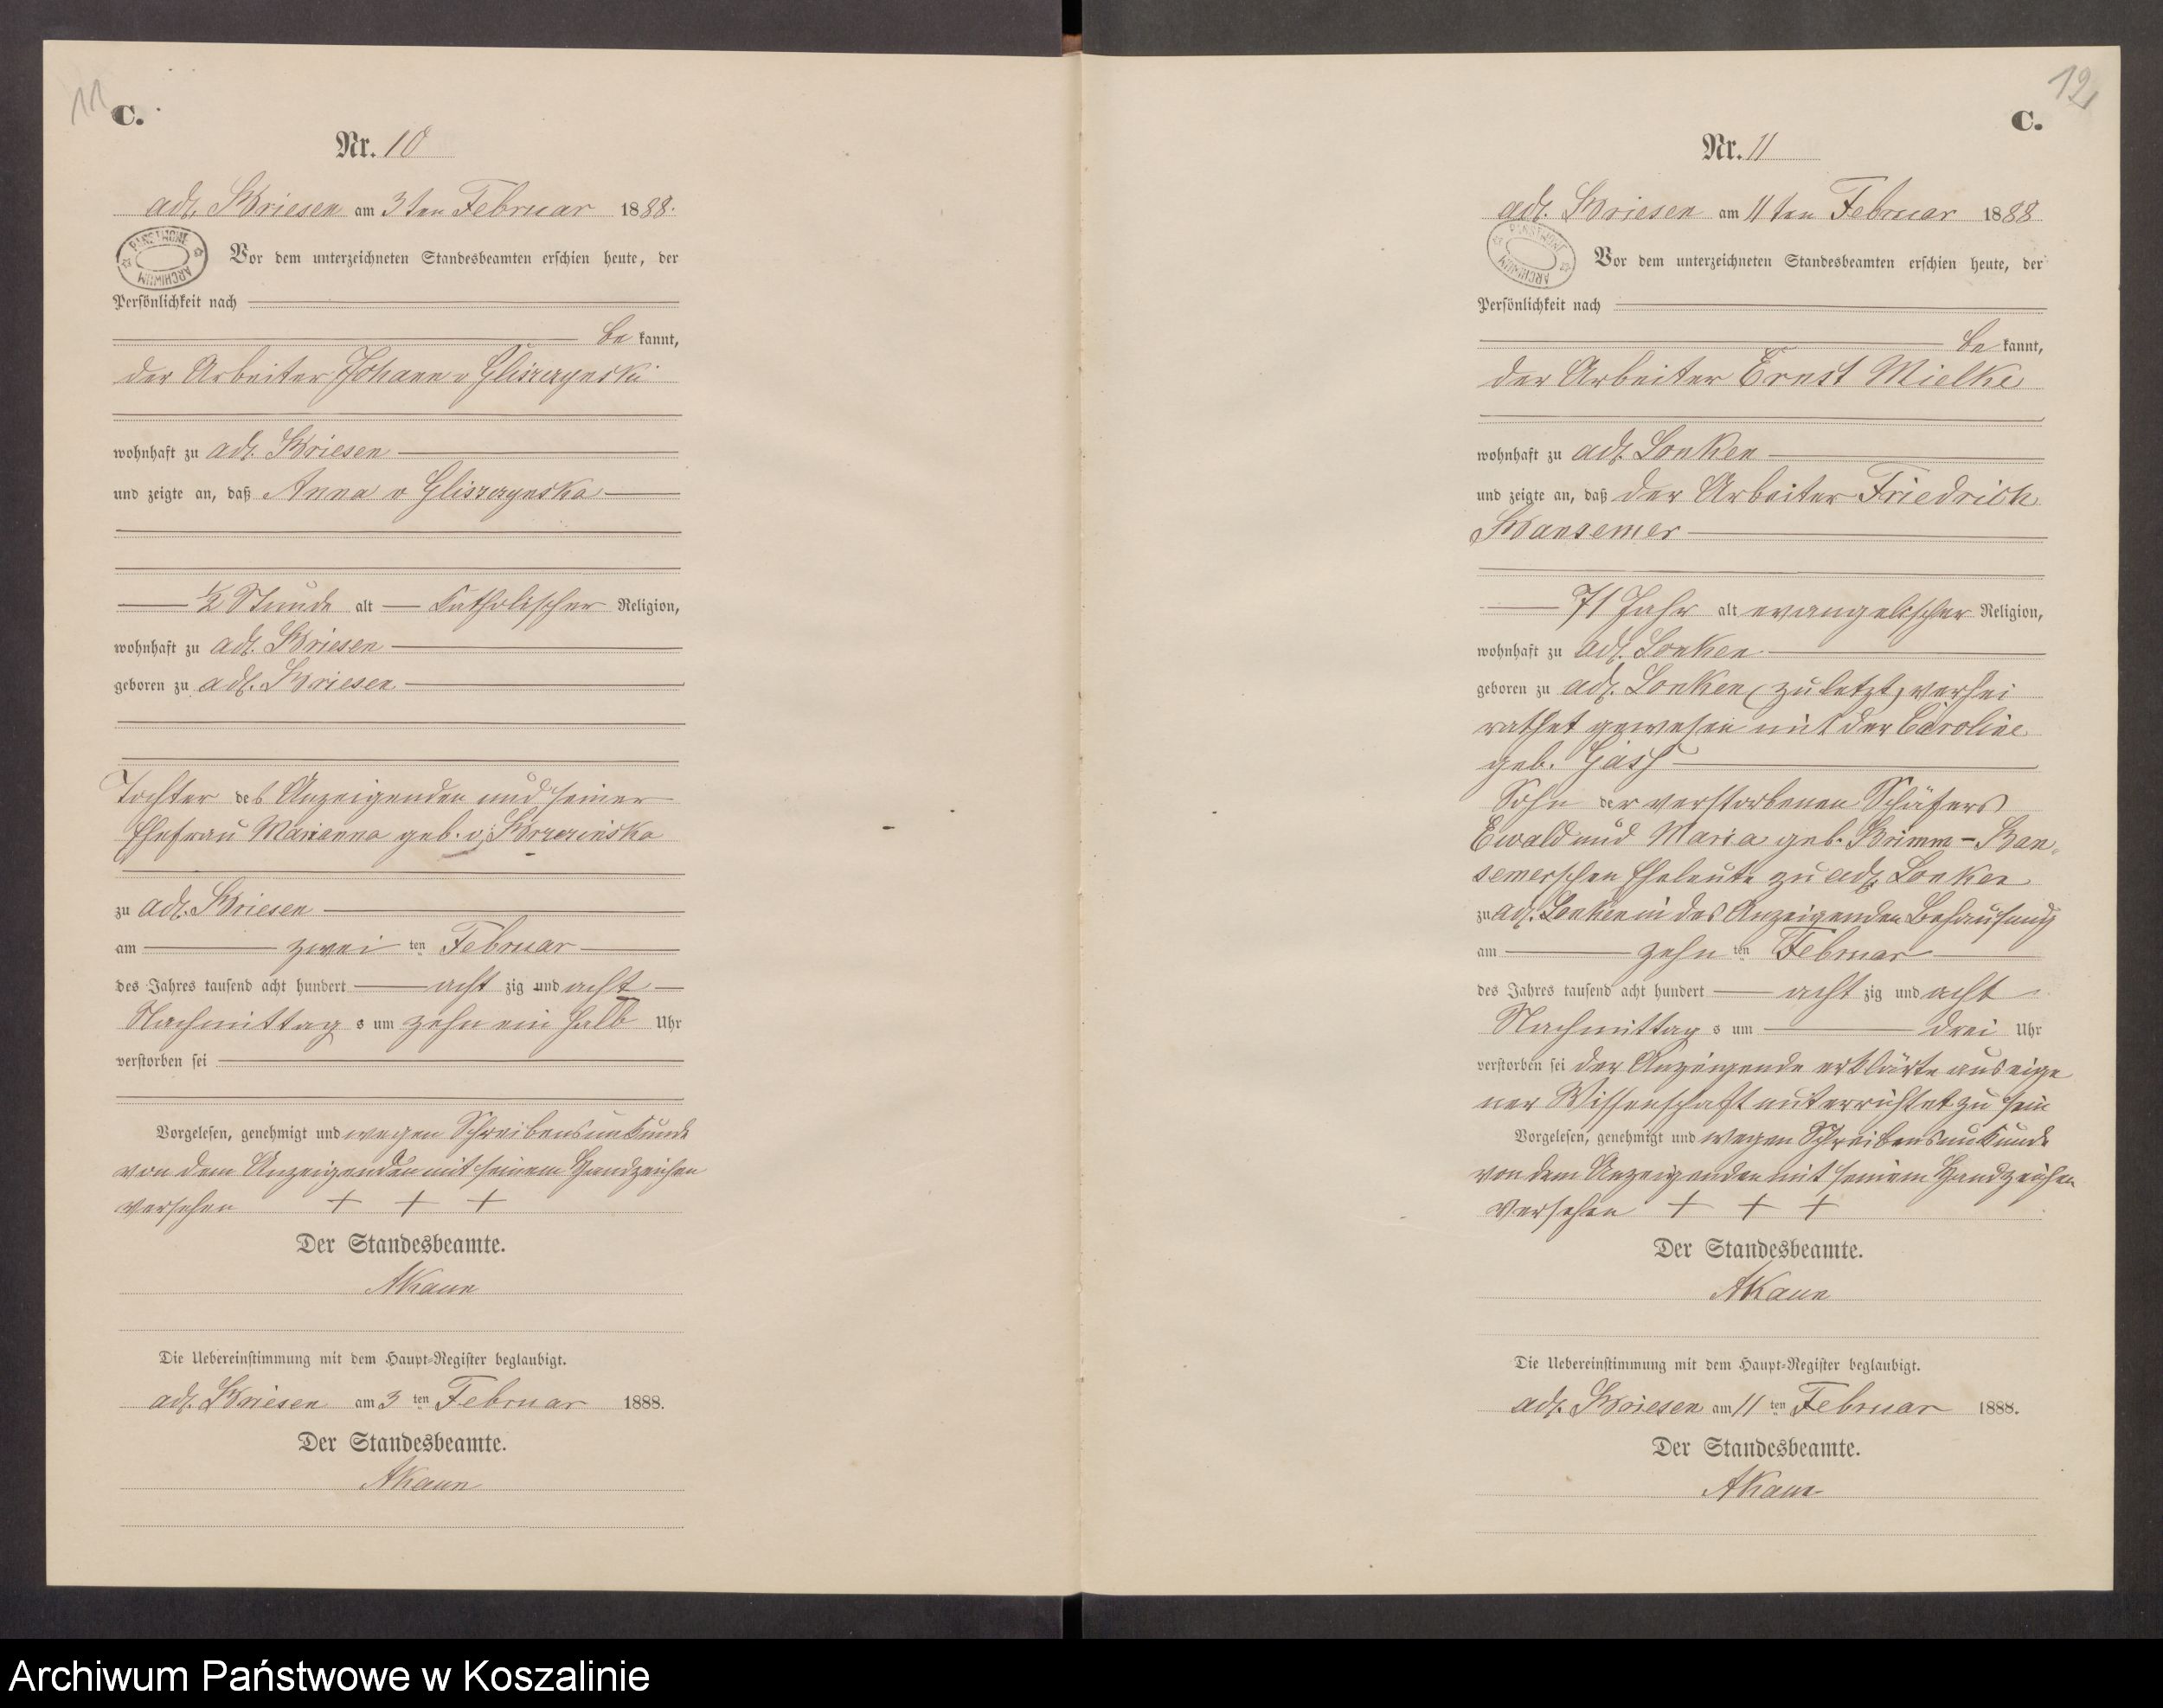 11
C.
Nr. 10
adl. Briesen am 3ten Februar 1888.
PAŃSTWOWE ARCHIWUM
Vor dem unterzeichneten Standesbeamten erschien heute, der
Persönlichkeit nach
be kannt,
der Arbeiter Johann v Gliszczynski
wohnhaft zu adl. Briesen
und zeigte an, daß Anna v Gliszczynska
1/2 Stunde alt katholischer Religion,
wohnhaft zu adl. Briesen
geboren zu adl. Briesen
Tochter des Anzeigenden und seiner
Ehefrau Marianna geb. v.
zu adl. Briesen
am zwei ten Februar
des Jahres tausend acht hundert acht zig und acht
Nachmittag s um zehn ein halb Uhr
verstorben sei
Vorgelesen, genehmigt und wegen Schreibensunkunde
von dem Anzeigenden mit seinem Handzeichen
versehen + + +
Der Standesbeamte.
AKaun
Die Uebereinstimmung mit dem Haupt-Register beglaubigt.
adl. Briesen am 3 ten Februar 1888.
Der Standesbeamte.
AKaun
12
C.
Nr. 11
adl. Briesen am 11ten Februar 1888
PAŃSTWOWE ARCHIWUM
Vor dem unterzeichneten Standesbeamten erschien heute, der
Persönlichkeit nach
be kannt,
der Arbeiter Ernst Mielke
wohnhaft zu adl. Lonken
und zeigte an, daß der Arbeiter Friedrich
Bansemer
71 Jahr alt evangelischer Religion,
wohnhaft zu adl. Lonken
geboren zu adl. Lonken (zuletzt) verhei
rathet gewesen mit der Caroline
geb.
Sohn der verstorbenen Schäfers
Ewald und Maria geb. Brimm - Ban-
semerschen Eheleute zu adl. Lonken
zu adl. Lonken in des Anzeigenden Behausung
am zehn ten Februar
des Jahres tausend acht hundert acht zig und acht
Nachmittag s um drei Uhr
verstorben sei der Anzeigende erklärte aus eige
ner Wissenschaft unterrichtet zu sein
Vorgelesen, genehmigt und wegen Schreibensunkunde
von dem Anzeigenden mit seinem Handzeichen
versehen + + +
Der Standesbeamte.
AKaun
Die Uebereinstimmung mit dem Haupt-Register beglaubigt.
adl. Briesen am 11 ten Februar 1888.
Der Standesbeamte.
AKaun
Archiwum Państwowe w Koszalinie